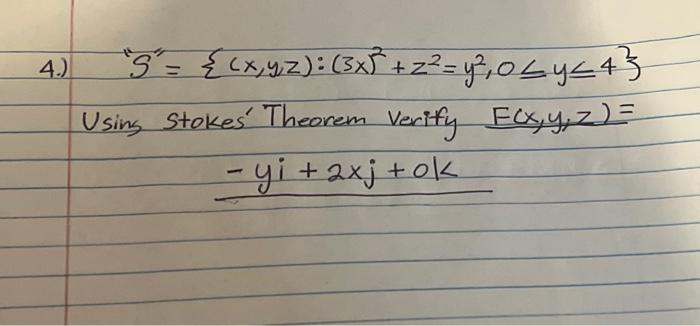 4.) "S" = { (x,y,z): (3x)² + z² = y², 0 ≤ y ≤ 4 }
Using Stokes' Theorem Verify F(x,y,z) =
- yi + 2xj + 0k